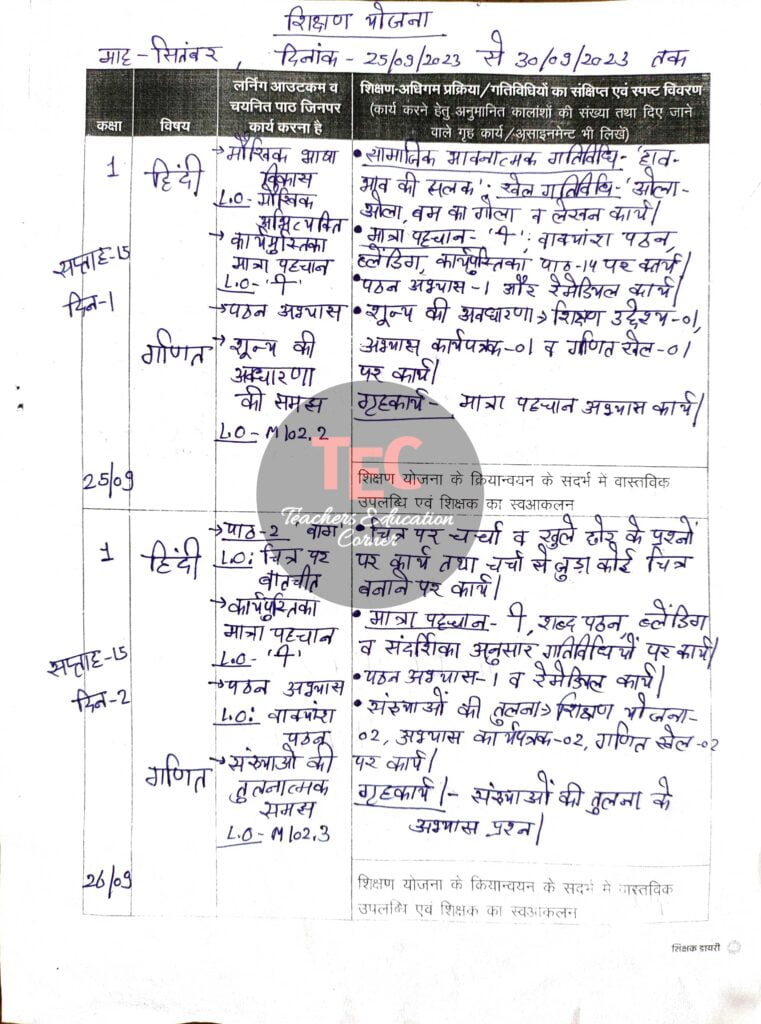 शिक्षण योजना
माह - सितंबर, दिनांक - 25/09/2023 से 30/09/2023 तक
कक्षा
विषय
लर्निंग आउटकम व
चयनित पाठ जिनपर
कार्य करना है
शिक्षण-अधिगम प्रक्रिया/गतिविधियों का संक्षिप्त एवं स्पष्ट विवरण
(कार्य करने हेतु अनुमानित कालांशों की संख्या तथा दिए जाने
वाले गृह कार्य/असाइनमेन्ट भी लिखें)
1
सप्ताह-15
दिन-1
25/09
हिंदी
गणित
→मौखिक भाषा
विकास
L.O- मौखिक
अभिव्यक्ति
→कार्यपुस्तिका
मात्रा पहचान
L.O- 'ी'
→पठन अभ्यास
→शून्य की
अवधारणा
की समझ
L.O- M102.2
• सामाजिक भावनात्मक गतिविधि- 'हाव-
भाव की झलक'; खेल गतिविधि- 'ओला-
ओला, बम का गोला व लेखन कार्य|
• मात्रा पहचान- 'ी'; वाक्यांश पठन,
ब्लेंडिंग, कार्यपुस्तिका पाठ-14 पर कार्य|
• पठन अभ्यास-1 और रेमेडियल कार्य|
• शून्य की अवधारणा→ शिक्षण उद्देश्य-01,
अभ्यास कार्यपत्रक-01 व गणित खेल-01
पर कार्य|
गृहकार्य- मात्रा पहचान अभ्यास कार्य|
TEC
Teachers Education
Corner
शिक्षण योजना के क्रियान्वयन के सदर्भ में वास्तविक
उपलब्धि एवं शिक्षक का स्वआकलन
1
सप्ताह-15
दिन-2
26/09
हिंदी
गणित
→पाठ-2 बाग
L.O: चित्र पर
बातचीत
→कार्यपुस्तिका
मात्रा पहचान
L.O- 'ी'
→पठन अभ्यास
L.O: वाक्यांश
पठन
→संख्याओं की
तुलनात्मक
समझ
L.O- M102.3
• चित्र पर चर्चा व खुले छोर के प्रश्नों
पर कार्य तथा चर्चा से जुड़ा कोई चित्र
बनाने पर कार्य|
• मात्रा पहचान- ी, शब्द पठन, ब्लेंडिंग
व संदर्शिका अनुसार गतिविधियों पर कार्य|
• पठन अभ्यास-1 व रेमेडियल कार्य|
• संख्याओं की तुलना→ शिक्षण योजना-
02, अभ्यास कार्यपत्रक-02, गणित खेल-02
पर कार्य|
गृहकार्य|- संख्याओं की तुलना के
अभ्यास प्रश्न|
शिक्षण योजना के क्रियान्वयन के सदर्भ में वास्तविक
उपलब्धि एवं शिक्षक का स्वआकलन
शिक्षक डायरी